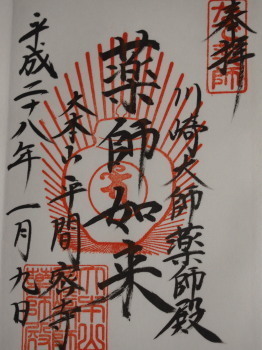 奉拝
川崎大師薬師殿
薬師如来
大本山平間寺
平成二十八年一月九日